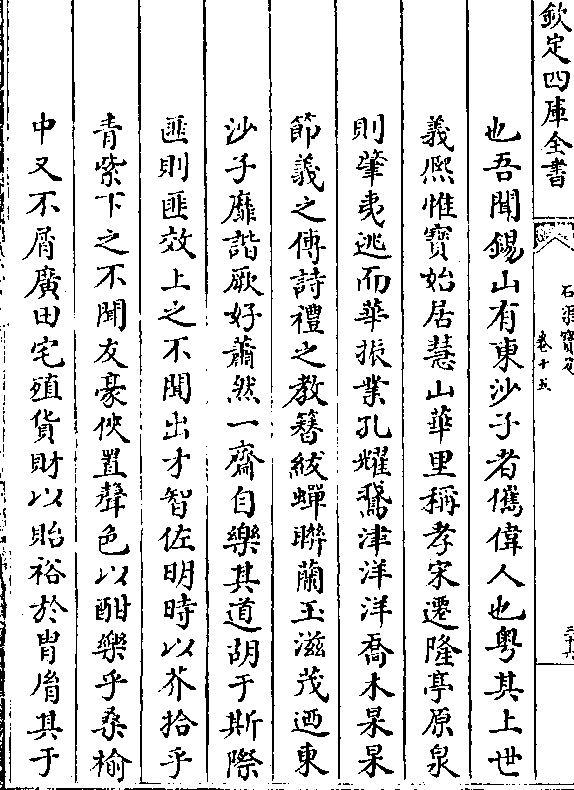 欽定四庫全書
石渠寶笈
卷十五
也吾聞錫山有東沙子者儁偉人也粤其上世
義熈惟寳始居慧山華里稱孝宋遷隆亭原泉
則肇夷逃而華振業孔耀鵞津洋洋喬木杲杲
節義之傅詩禮之教簪紱蟬聯蘭玉滋茂迺東
沙子靡諧厥好蕭然一齋自樂其道胡于斯際
匪則匪效上之不聞出才智佐明時以芥拾乎
青紫下之不聞友豪俠置聲色以酣樂乎桑榆
中又不屑廣田宅殖貨財以貽裕於胄胤其于